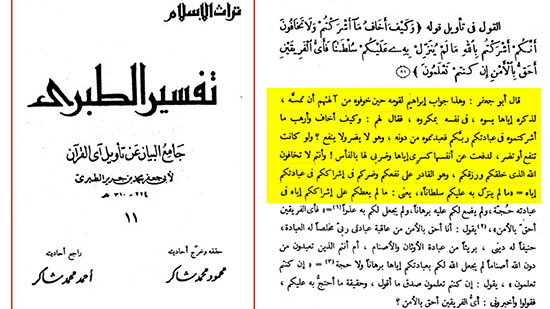 تراث الإسلام
تفسير الطبرى
جامع البيان عن تأويل آى القرآن
لأبى جعفر محمد بن جرير الطبرى
٢٢٤ - ٣١٠ هـ
١١
حققه وعلق حواشيه
محمود محمد شاكر
راجعه وخرج أحاديثه
أحمد محمد شاكر
القول فى تأويل قوله ﴿وَكَيْفَ أَخَافُ مَآ أَشْرَكْتُمْ وَلَا تَخَافُونَ
أَنَّكُمْ أَشْرَكْتُم بِٱللَّهِ مَا لَمْ يُنَزِّلْ بِهِۦ عَلَيْكُمْ سُلْطَٰنًا فَأَىُّ ٱلْفَرِيقَيْنِ
أَحَقُّ بِٱلْأَمْنِ إِن كُنتُمْ تَعْلَمُونَ﴾ (٨١)
قال أبو جعفر : وهذا جواب إبراهيم لقومه حين خوفوه من آلهتهم أن تمسَّه ،
لذكره إياها بسوء ، فى نفسه بمكروه ، فقال لهم : وكيف أخاف وأرهب ما
أشركتموه فى عبادتكم ربَّكم فعبدتموه من دونه ، وهو لا يضر ولا ينفع ؟ ولو كانت
تنفع أو تضر ، لدفعت عن أنفسها كسرى إياها وضربى لها بالفأس ! وأنتم لا تخافون
الله الذى خلقكم ورزقكم ، وهو القادر على نفعكم وضركم فى إشراككم فى عبادتكم
إياه = «ما لم ينزل به عليكم سلطاناً» ، يعنى : ما لم يعطكم على إشراككم إياه فى
عبادته حُجّة ، ولم يضع لكم عليه برهاناً ، ولم يجعل لكم به عذراً = «فأى الفريقين
أحق بالأمن» ، يقول : أنا أحق بالأمن من عاقبة عبادتى ربّى مخلصاً له العبادة ،
حنيفاً له دينى ، بريئاً من عبادة الأوثان والأصنام ، أم أنتم الذين تعبدون من
دون الله أصناماً لم يجعل الله لكم بعبادتكم إياها برهاناً ولا حجة = «إن كنتم
تعلمون» ، يقول : إن كنتم تعلمون صدق ما أقول ، وحقيقة ما أحتجُّ به عليكم ،
فقولوا وأخبرونى : أىُّ الفريقين أحق بالأمن ؟